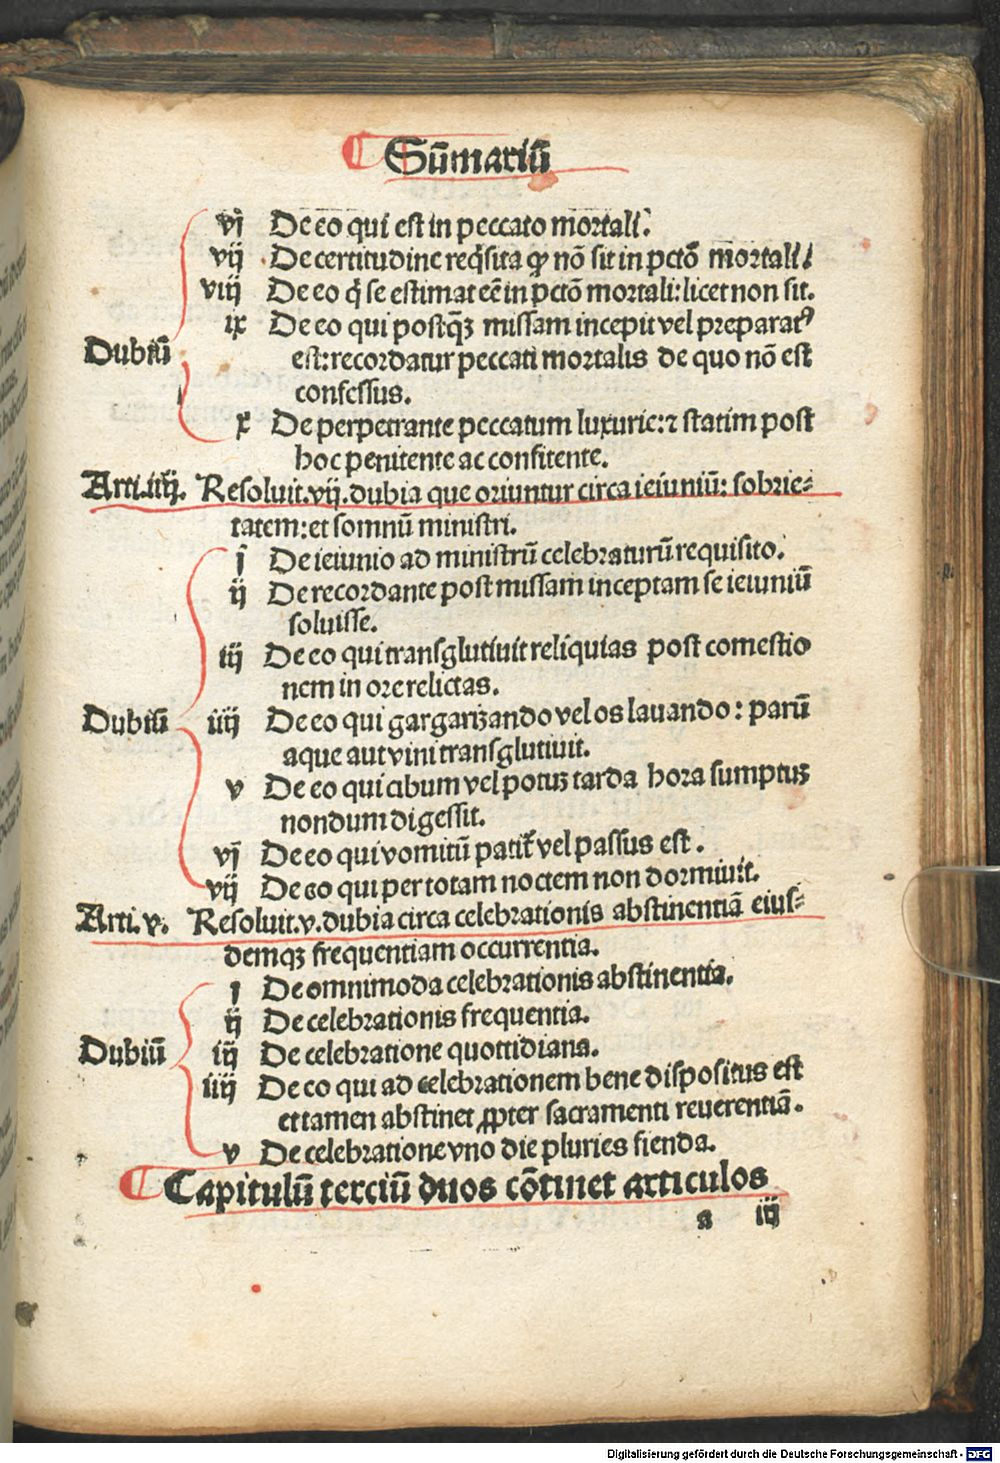 Sũmariũ
vi De eo qui est in peccato mortali.
vii De certitudine reqͥsita ꝙ nõ sit in pctõ mortali.
viij De eo qͥ se estimat eẽ in pctõ mortali: licet non sit.
ix De eo qui postqȝ missam incepit vel preparatꝰ
Dubiũ
est: recordatur peccati mortalis de quo nõ est
confessus.
x De perpetrante peccatum luxurie: ⁊ statim post
hoc penitente ac confitente.
Arti.iiij. Resoluit.vij.dubia que oriuntur circa ieiuniũ: sobrie⸗
tatem: et somnũ ministri.
i De ieiunio ad ministrũ celebraturũ requisito.
ij De recordante post missam inceptam se ieiuniũ
soluisse.
iij De eo qui transglutiuit reliquias post comestio
nem in ore relictas.
Dubiũ iiij De eo qui gargarizando vel os lauando: parũ
aque aut vini transglutiuit.
v De eo qui cibum vel potuȝ tarda hora sumptuȝ
nondum digessit.
vj De eo qui vomitũ patit᷑ vel passus est.
vij De eo qui per totam noctem non dormiuit.
Arti.v. Resoluit.v.dubia circa celebrationis abstinentiã eius⸗
demqȝ frequentiam occurrentia.
i De omnimoda celebrationis abstinentia.
ij De celebrationis frequentia.
Dubiũ iij De celebratione quottidiana.
iiij De eo qui ad celebrationem bene dispositus est
et tamen abstinet ꝓpter sacramenti reuerentiã.
v De celebratione vno die pluries fienda.
Capitulũ terciũ duos cõtinet articulos
a iij
Digitalisierung gefördert durch die Deutsche Forschungsgemeinschaft - DFG